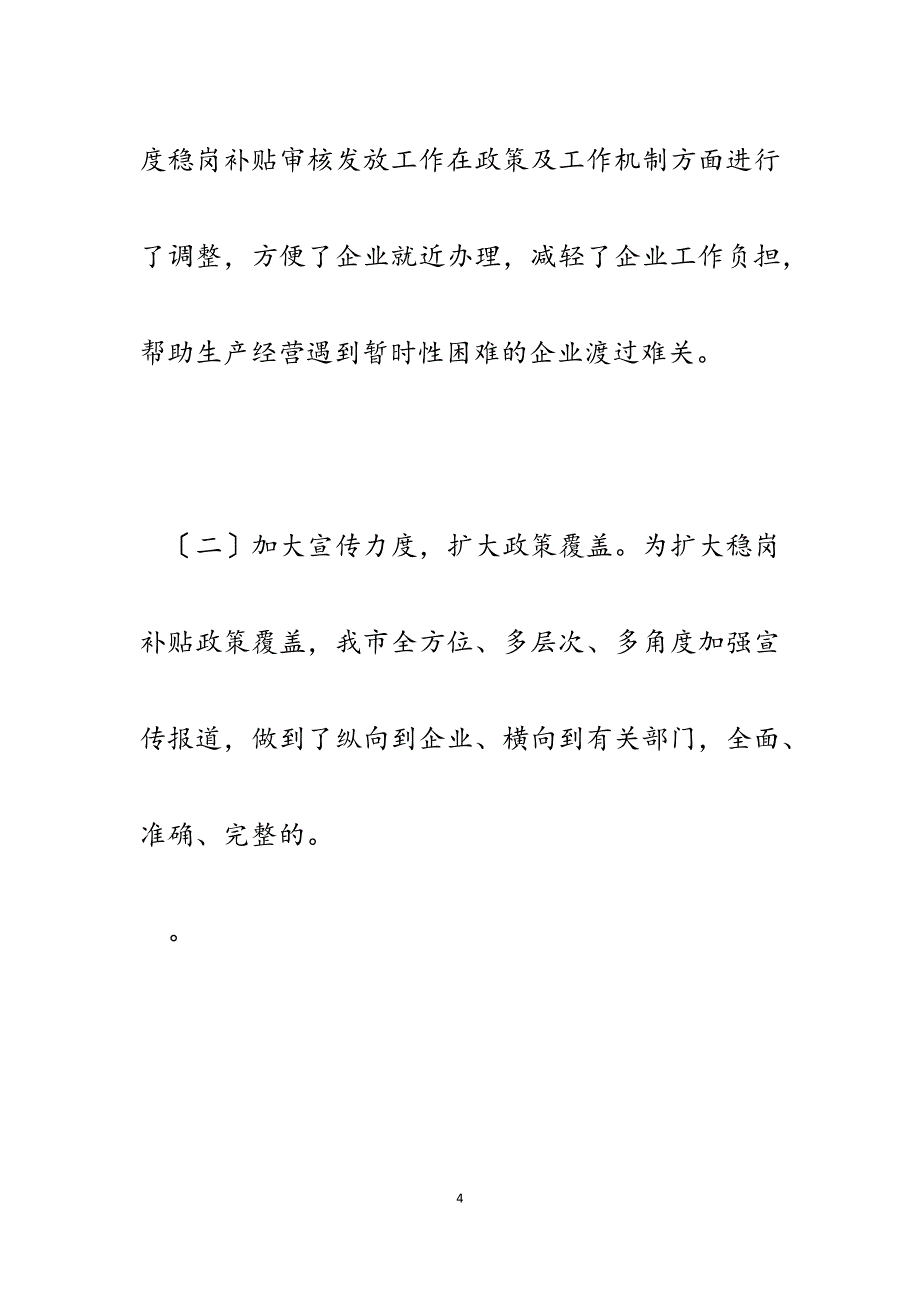 度稳岗补贴审核发放工作在政策及工作机制方面进行
了调整，方便了企业就近办理，减轻了企业工作负担，
帮助生产经营遇到暂时性困难的企业渡过难关。
〔二〕加大宣传力度，扩大政策覆盖。为扩大稳岗
补贴政策覆盖，我市全方位、多层次、多角度加强宣
传报道，做到了纵向到企业、横向到有关部门，全面、
准确、完整的。
。
4